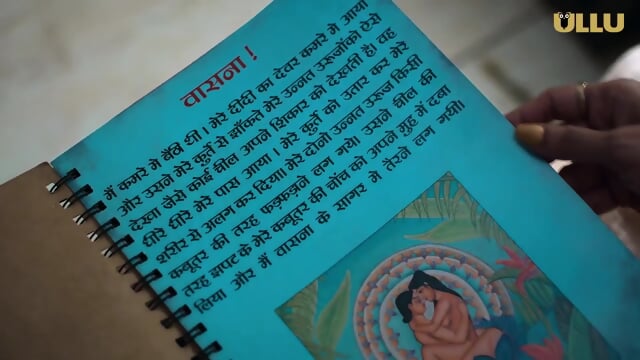 ULLU
वासना !
मैं कमरे मे बैठी थी । मेरे दीदी का देवर कमरे मे आया
और उसने मेरे कुर्ते से झाँकते मेरे उन्नत उरुजोंको ऐसे
देखा जैसे कोई चील अपने शिकार को देखती है। वह
धीरे धीरे मेरे पास आया । मेरे कुर्ते को उतार कर मेरे
शरीर से अलग कर दिया। मेरे दोनो उन्नत उरुज किसी
कबूतर की तरह फड़फड़ाने लग गये। उसने चील की
तरह झपट के मेरे कबूतर की चोंच को अपने मुह में दबा
लिया और मैं वासना के सागर मे तैरने लग गयी।